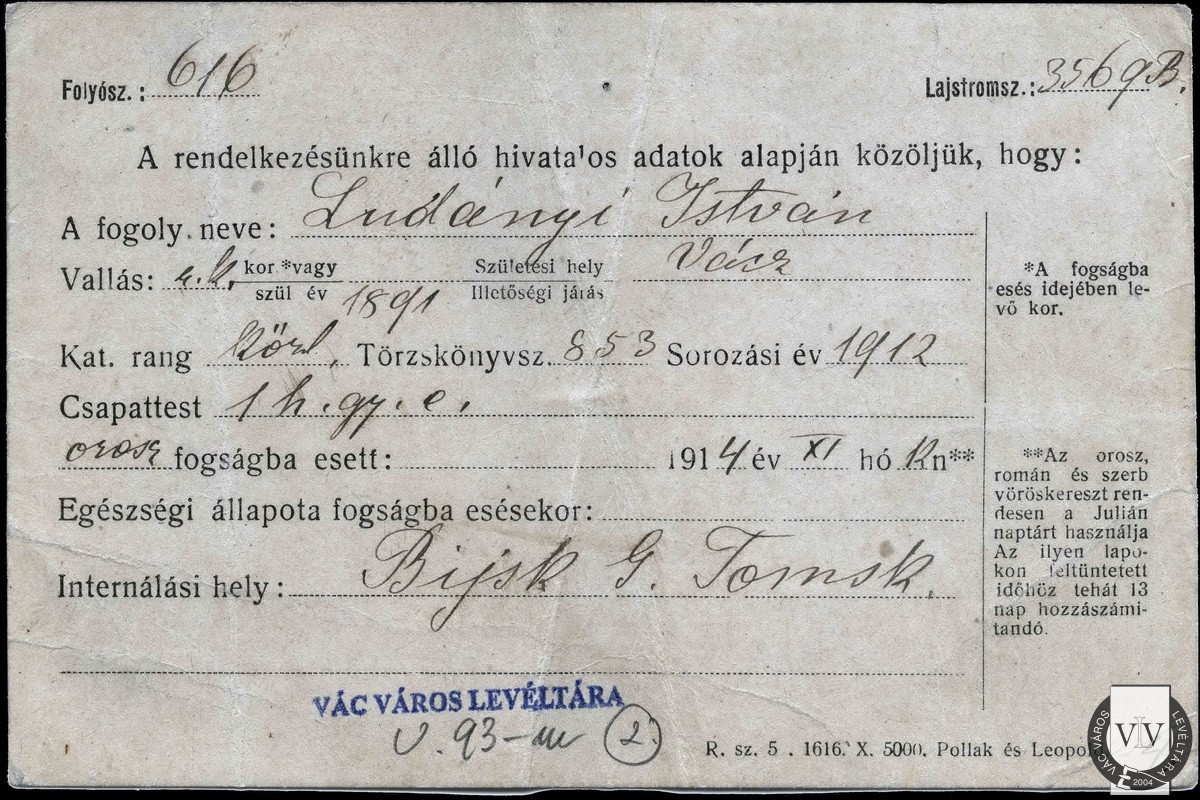 Folyósz.: 616 Lajstromsz.: 3569 B.
A rendelkezésünkre álló hivata'os adatok alapján közöljük, hogy:
A fogoly neve: Ludányi István
Vallás: r.k. kor *vagy szül év 1891 Születési hely Illetőségi járás Vácz
Kat. rang közl. Törzskönyvsz. 853 Sorozási év 1912
Csapattest 1 h. gy. e.
orosz fogságba esett: 1914 év XI hó n**
Egészségi állapota fogságba esésekor:
Internálási hely: Bijsk G. Tomsk.
*A fogságba
esés idejében le-
vő kor.
**Az orosz,
román és szerb
vöröskereszt ren-
desen a Julián
naptárt használja
Az ilyen lapo-
kon feltüntetett
időhöz tehát 13
nap hozzászámi-
tandó.
VÁC VÁROS LEVÉLTÁRA
V. 93- 2.
R. sz. 5 . 1616. X. 5000. Pollak és Leopol
VÁC VÁROS LEVÉLTÁRA
VLV
2004